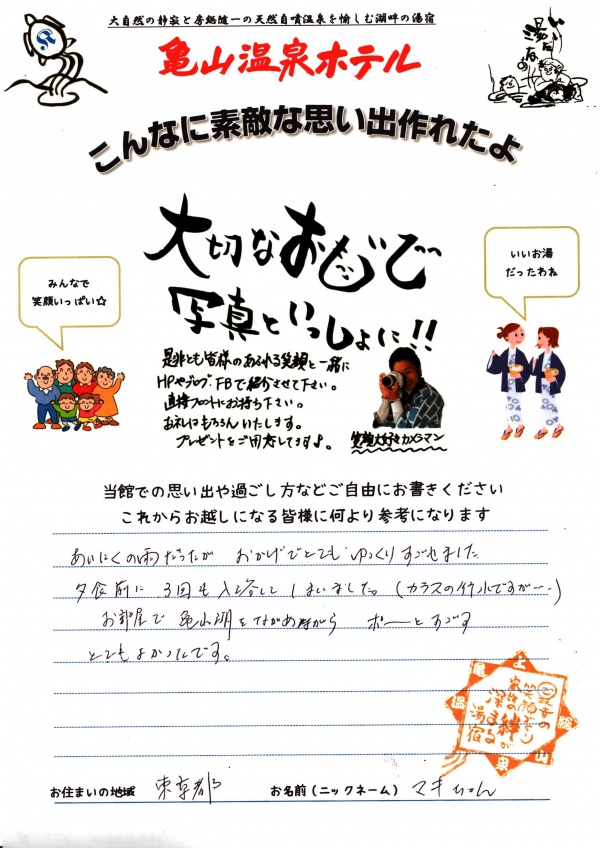 大自然の静寂と房総随一の天然自噴温泉を愉しむ湖畔の湯宿
亀山温泉ホテル
いい湯だなあ
こんなに素敵な思い出作れたよ
大切なおもいで
写真といっしょに!!
みんなで
笑顔いっぱい☆
いいお湯
だったわね
是非とも皆様のあふれる笑顔と一緒に
HPやブログ、FBで紹介させて下さい。
直接フロントにお持ち下さい。
お礼はもちろんいたします。
プレゼントをご用意してます♪。
笑顔大好きカメラマン
当館での思い出や過ごし方などご自由にお書きください
これからお越しになる皆様に何より参考になります
あいにくの雨だったが おかげでとてもゆっくりすごせました
夕食前に 3回も入浴してしまいました。(カラスの行水ですが…)
お部屋で 亀山湖をながめながら ボーとすごす
とてもよかったです。
お住まいの地域 東京都
お名前(ニックネーム) マキちゃん